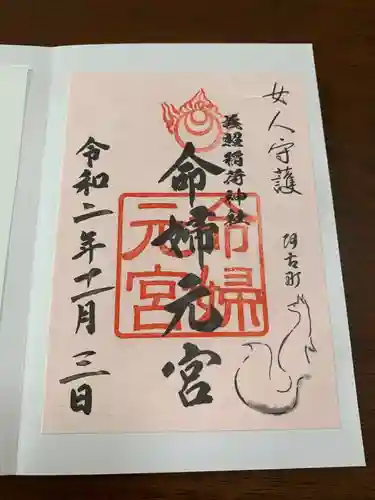 女人守護
阿古町
義照稲荷神社
命婦元宮
命婦元宮
令和二年十一月三日